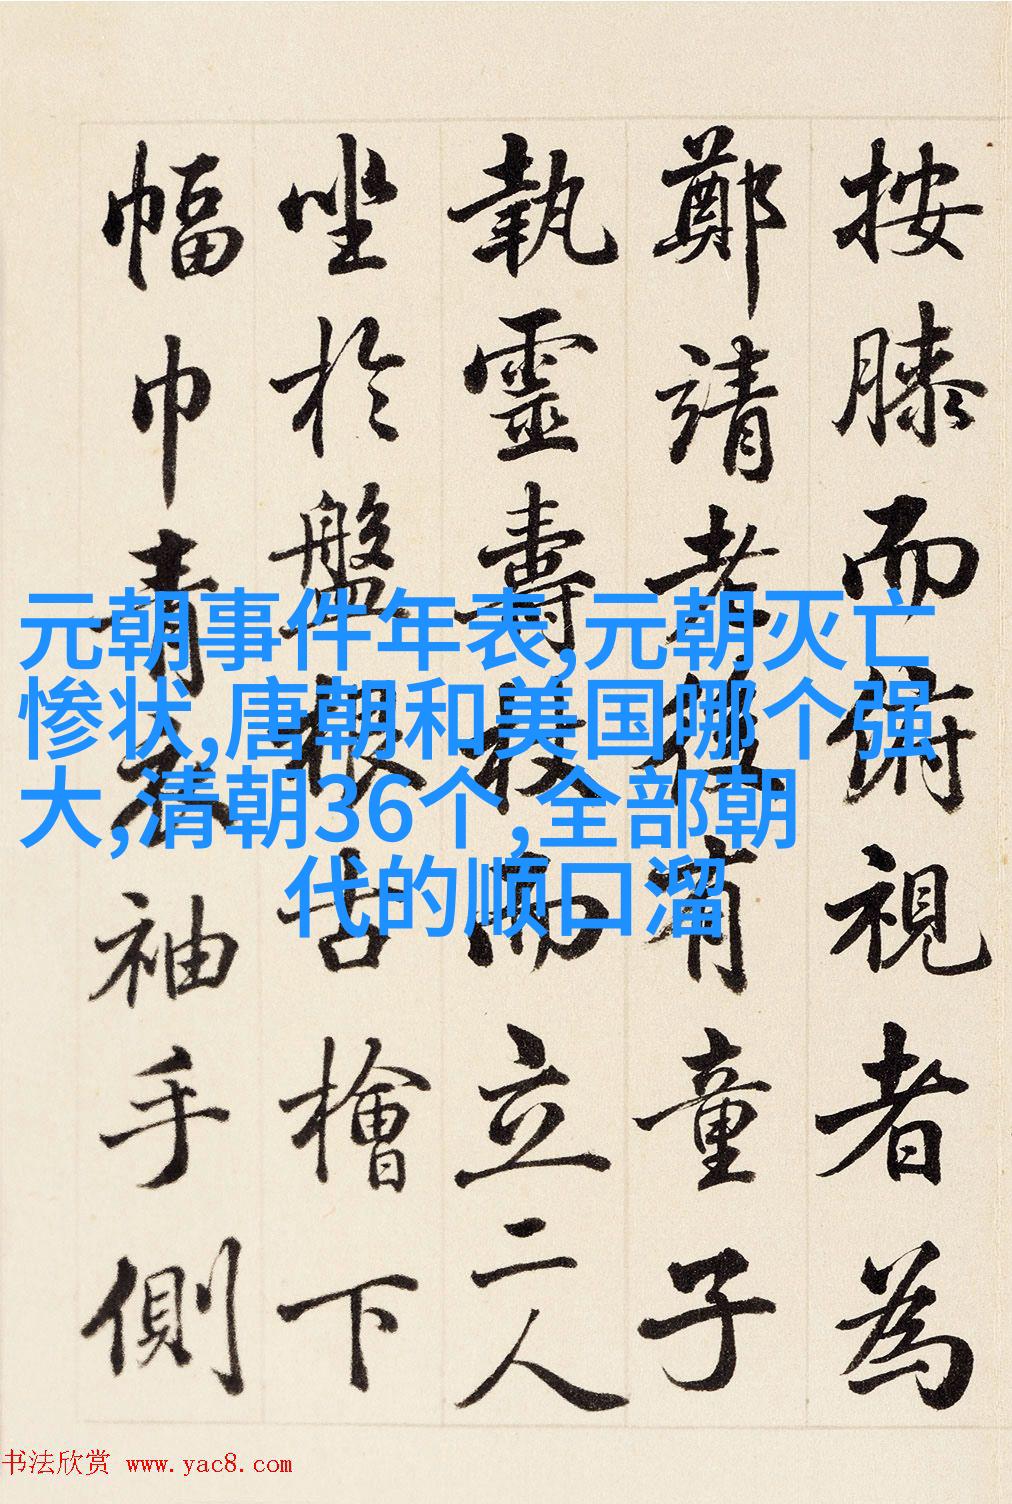 按膝而俯視者為
鄭靖老後有童子
執靈壽杖而立二人
坐於盤根古檜下
幅巾青衣袖手側
元朝事件年表,元朝灭亡
惨状,唐朝和美国哪个强
大,清朝36个,全部朝
代的顺口溜
书法欣赏 www.yac8.com